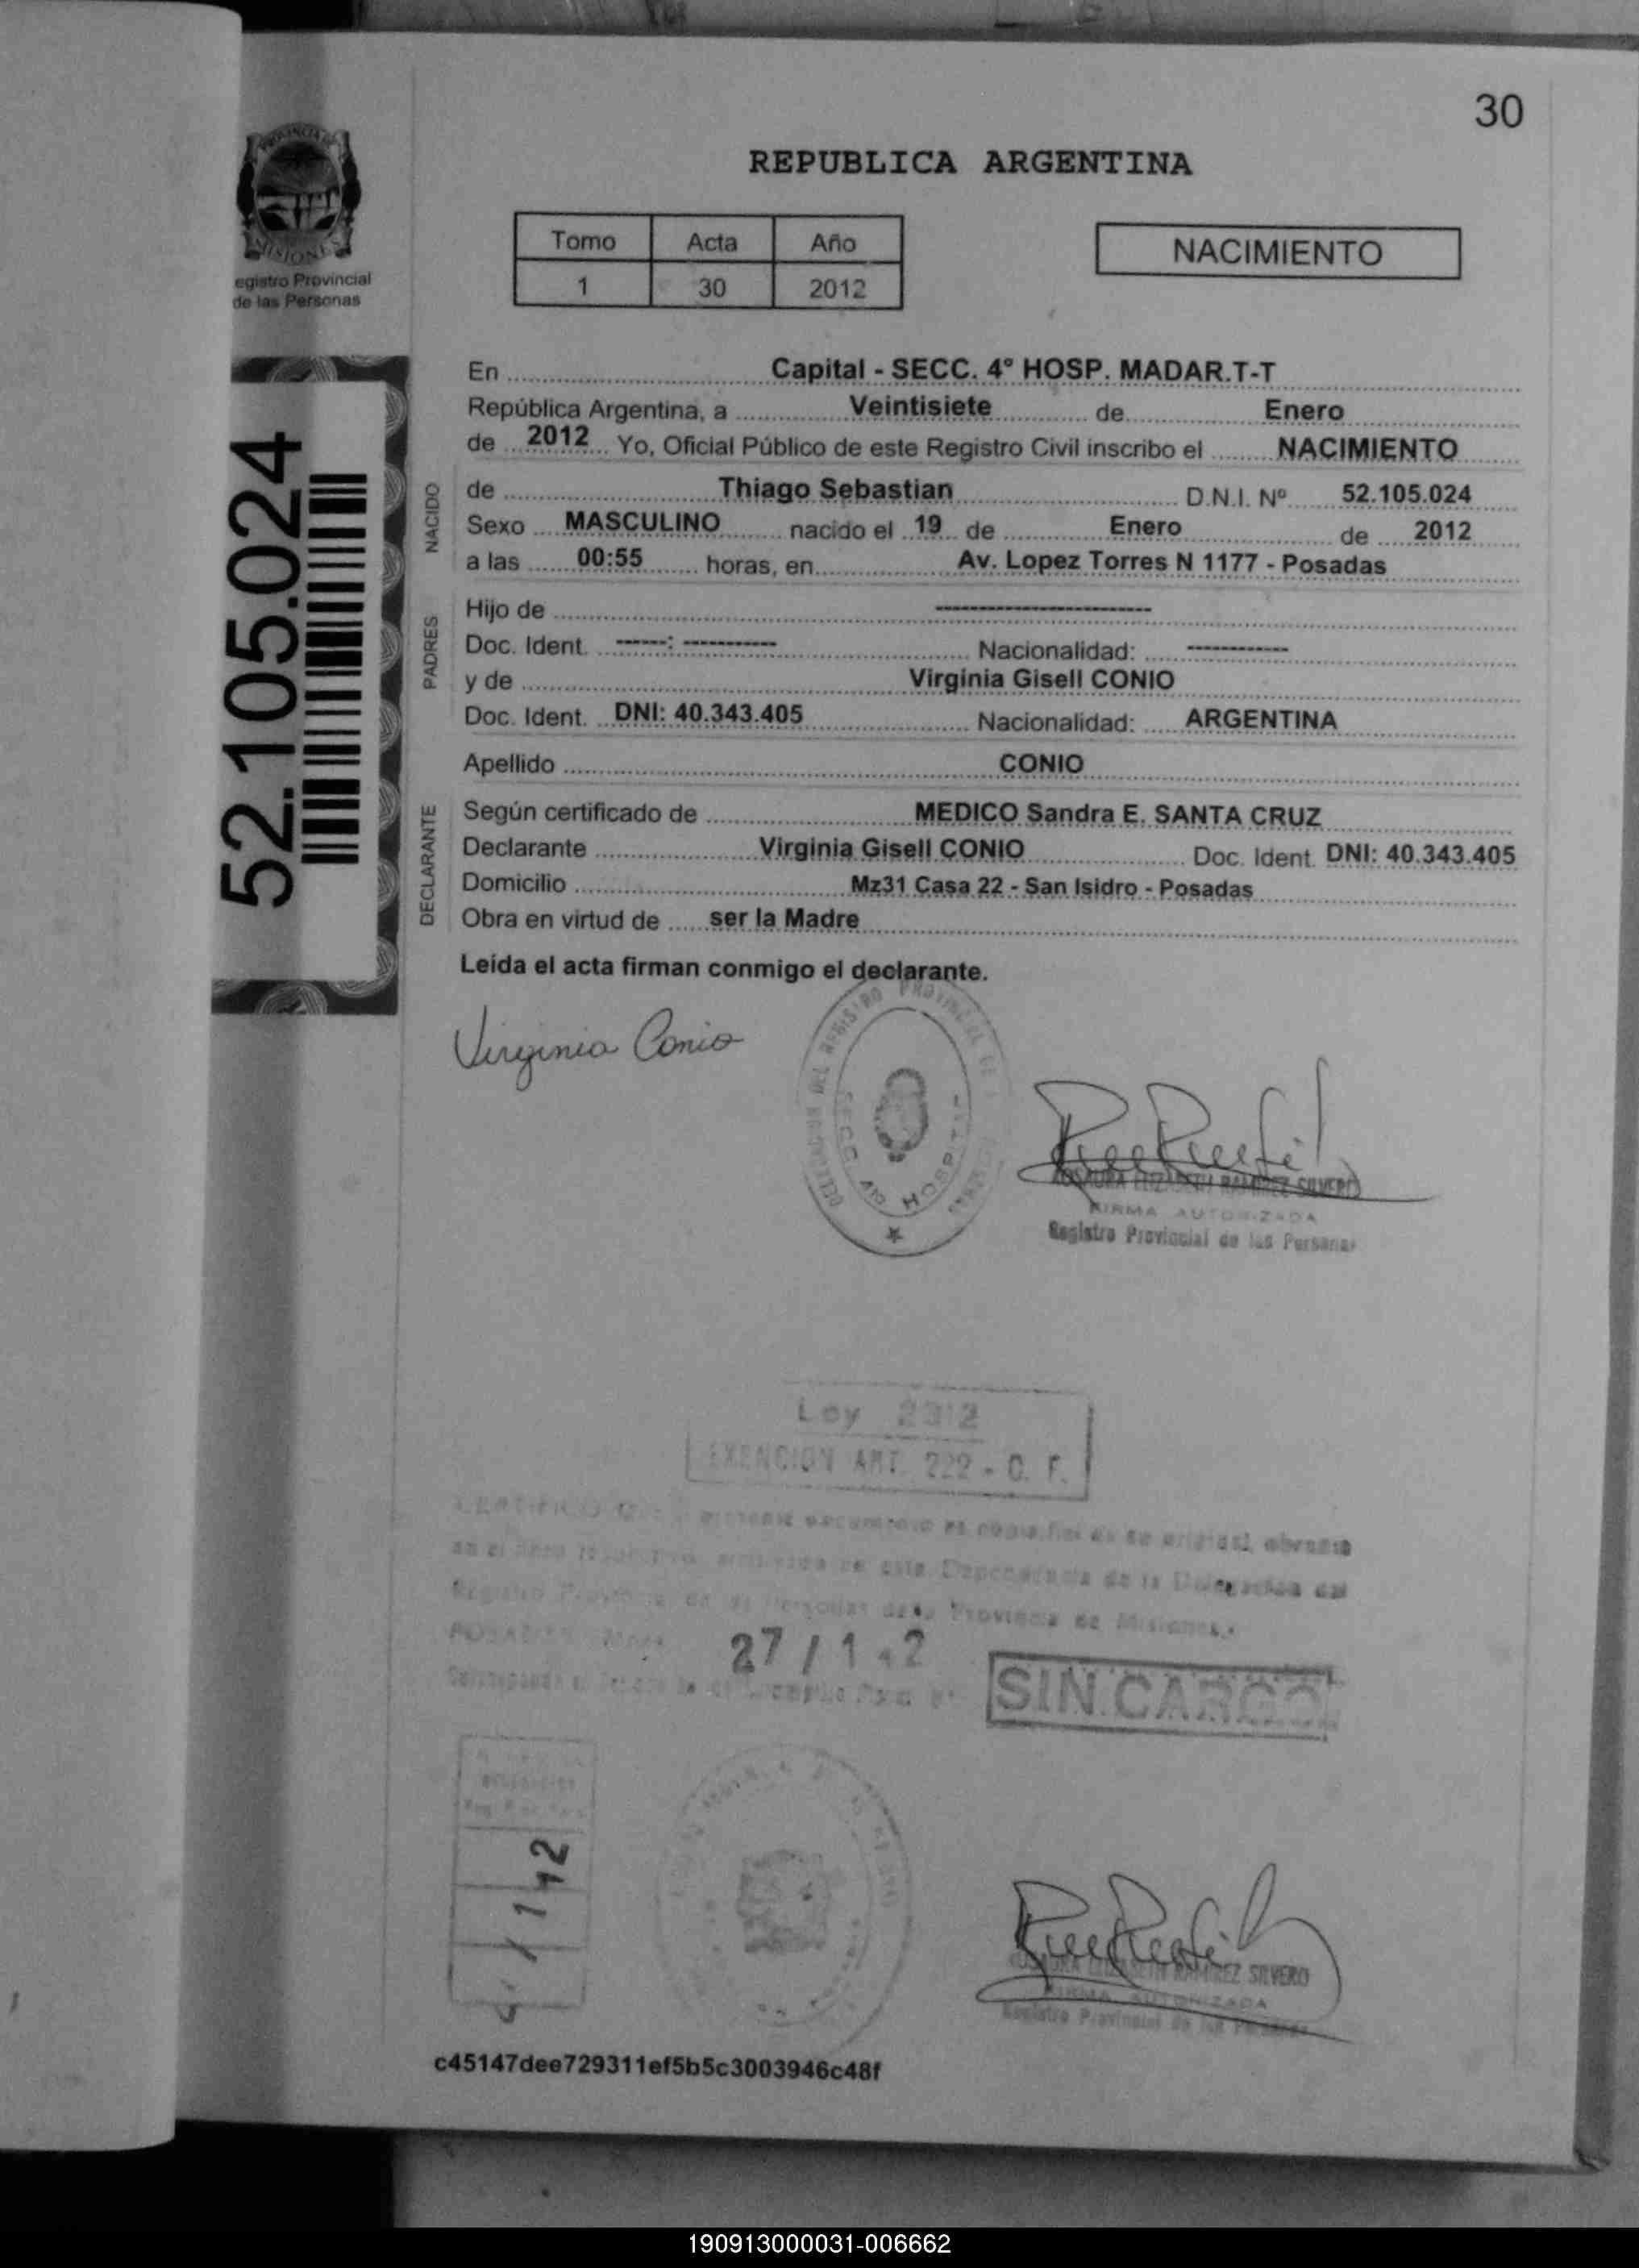 30
PROVINCIA DE
MISIONES
egistro Provincial
de las Personas
REPUBLICA ARGENTINA
Tomo Acta Año
1 30 2012
NACIMIENTO
52.105.024
En Capital - SECC. 4° HOSP. MADAR.T-T
República Argentina, a Veintisiete de Enero
de 2012 Yo, Oficial Público de este Registro Civil inscribo el NACIMIENTO
NACIDO
de Thiago Sebastian D.N.I. Nº 52.105.024
Sexo MASCULINO nacido el 19 de Enero de 2012
a las 00:55 horas, en Av. Lopez Torres N 1177 - Posadas
PADRES
Hijo de --------------------
Doc. Ident. ------: ----------- Nacionalidad: ------------
y de Virginia Gisell CONIO
Doc. Ident. DNI: 40.343.405 Nacionalidad: ARGENTINA
Apellido CONIO
DECLARANTE
Según certificado de MEDICO Sandra E. SANTA CRUZ
Declarante Virginia Gisell CONIO Doc. Ident. DNI: 40.343.405
Domicilio Mz31 Casa 22 - San Isidro - Posadas
Obra en virtud de ser la Madre
Leída el acta firman conmigo el declarante.
Virginia Conio
DEL REGISTRO PROVINCIAL DE
SECC 4ta HOSPIT
ROSAURA ELIZABETH RAMIREZ SILVERO
FIRMA AUTORIZADA
Registro Provincial de las Personas
Ley 2312
EXENCION ART. 222 - C. F.
presente documento es copia fiel de su original, obrante
en el libro de esta Dependencia de la Delegación del
Registro Provincial de las Personas de la Provincia de Misiones.-
POSADAS
27 / 1 12
SIN CARGO
/ 1 12
ROSAURA ELIZABETH RAMIREZ SILVERO
FIRMA AUTORIZADA
Registro Provincial de las Personas
c45147dee729311ef5b5c3003946c48f
190913000031-006662